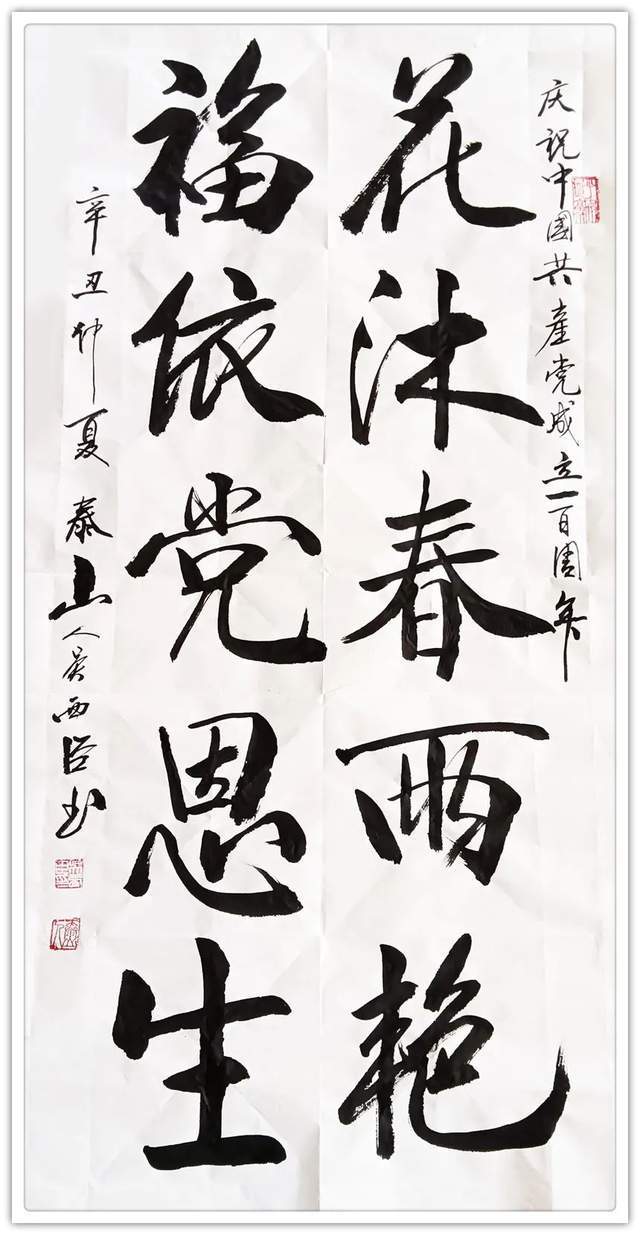 庆祝中國共産党成立一百周年
花沐春雨艳
福依党恩生
辛丑仲夏泰山人吴西臣书